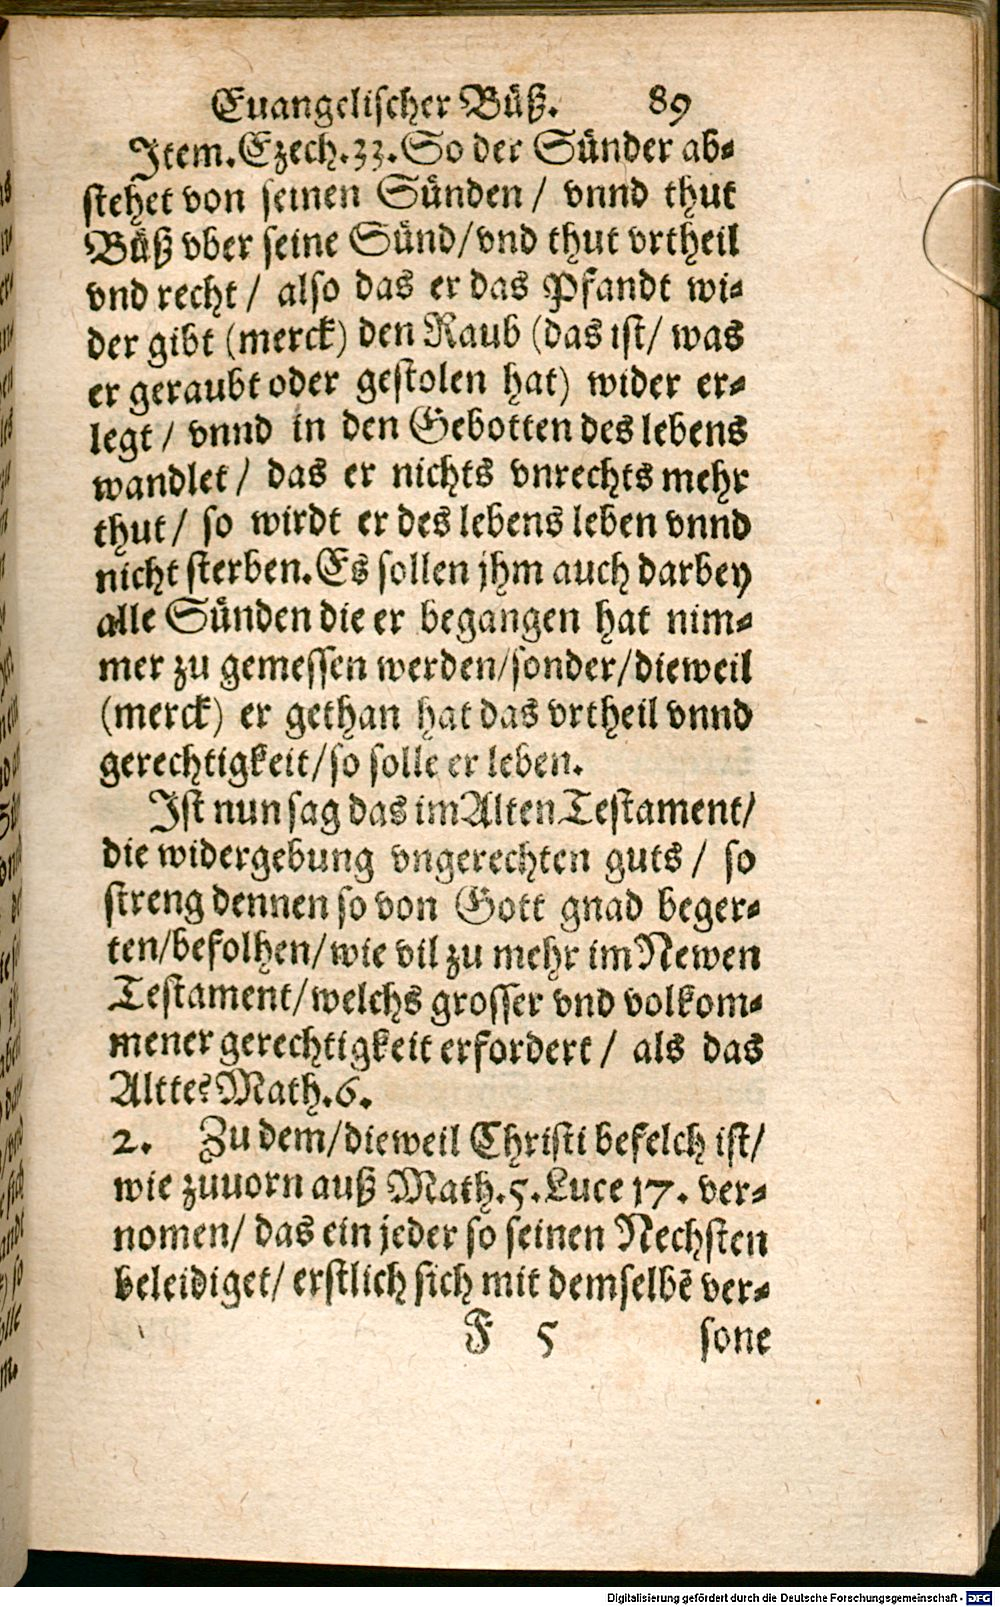 Euangelischer Büß. 89
Item. Ezech. 33. So der Sünder ab-
stehet von seinen Sünden / vnnd thut
Büß vber seine Sünd / vnd thut vrtheil
vnd recht / also das er das Pfandt wi-
der gibt (merck) den Raub (das ist / was
er geraubt oder gestolen hat) wider er-
legt / vnnd in den Gebotten des lebens
wandlet / das er nichts vnrechts mehr
thut / so wirdt er des lebens leben vnnd
nicht sterben. Es sollen jhm auch darbey
alle Sünden die er begangen hat nim-
mer zu gemessen werden / sonder / dieweil
(merck) er gethan hat das vrtheil vnnd
gerechtigkeit / so solle er leben.
Ist nun sag das im Alten Testament /
die widergebung vngerechten guts / so
streng dennen so von Gott gnad beger-
ten / befolhen / wie vil zu mehr im Newen
Testament / welchs grosser vnd volkom-
mener gerechtigkeit erfordert / als das
Altte? Math. 6.
2. Zu dem / dieweil Christi befelch ist /
wie zuuorn auß Math. 5. Luce 17. ver-
nomen / das ein jeder so seinen Nechsten
beleidiget / erstlich sich mit demselbē ver-
F 5 sone
Digitalisierung gefördert durch die Deutsche Forschungsgemeinschaft - DFG